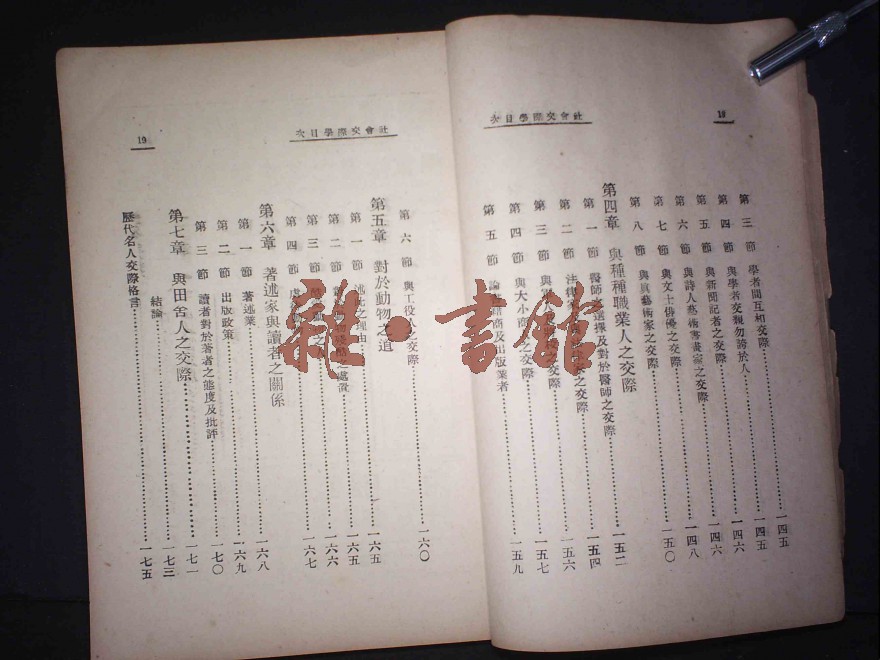 社會交際學目次
19
第三節 學者間互相交際……一四五
第四節 與學者交親勿誇於人……一四五
第五節 與新聞記者之交際……一四六
第六節 與詩人藝術書畫家之交際……一四六
第七節 與文士俳優之交際……一四八
第八節 與眞藝術家之交際……一五〇
第四章 與種種職業人之交際……一五二
第一節 醫師之選擇及對於醫師之交際……一五四
第二節 法律 之交際……一五六
第三節 與 交際……一五七
第四節 與大小商 之交際
第五節 論 商及出版業者……一五九
社會交際學目次
19
第六節 與工役人之交際……一六〇
第五章 對於動物之道……一六五
第一節 述 之理由……一六五
第二節 之處置……一六六
第三節
第四節 虐……一六七
第六章 著述家與讀者之關係……一六八
第一節 著述業……一六九
第二節 出版政策……一七〇
第三節 讀者對於著者之態度及批評……一七一
第七章 與田舍人之交際……一七三
結論
歷代名人交際格言……一七五
雜·書館